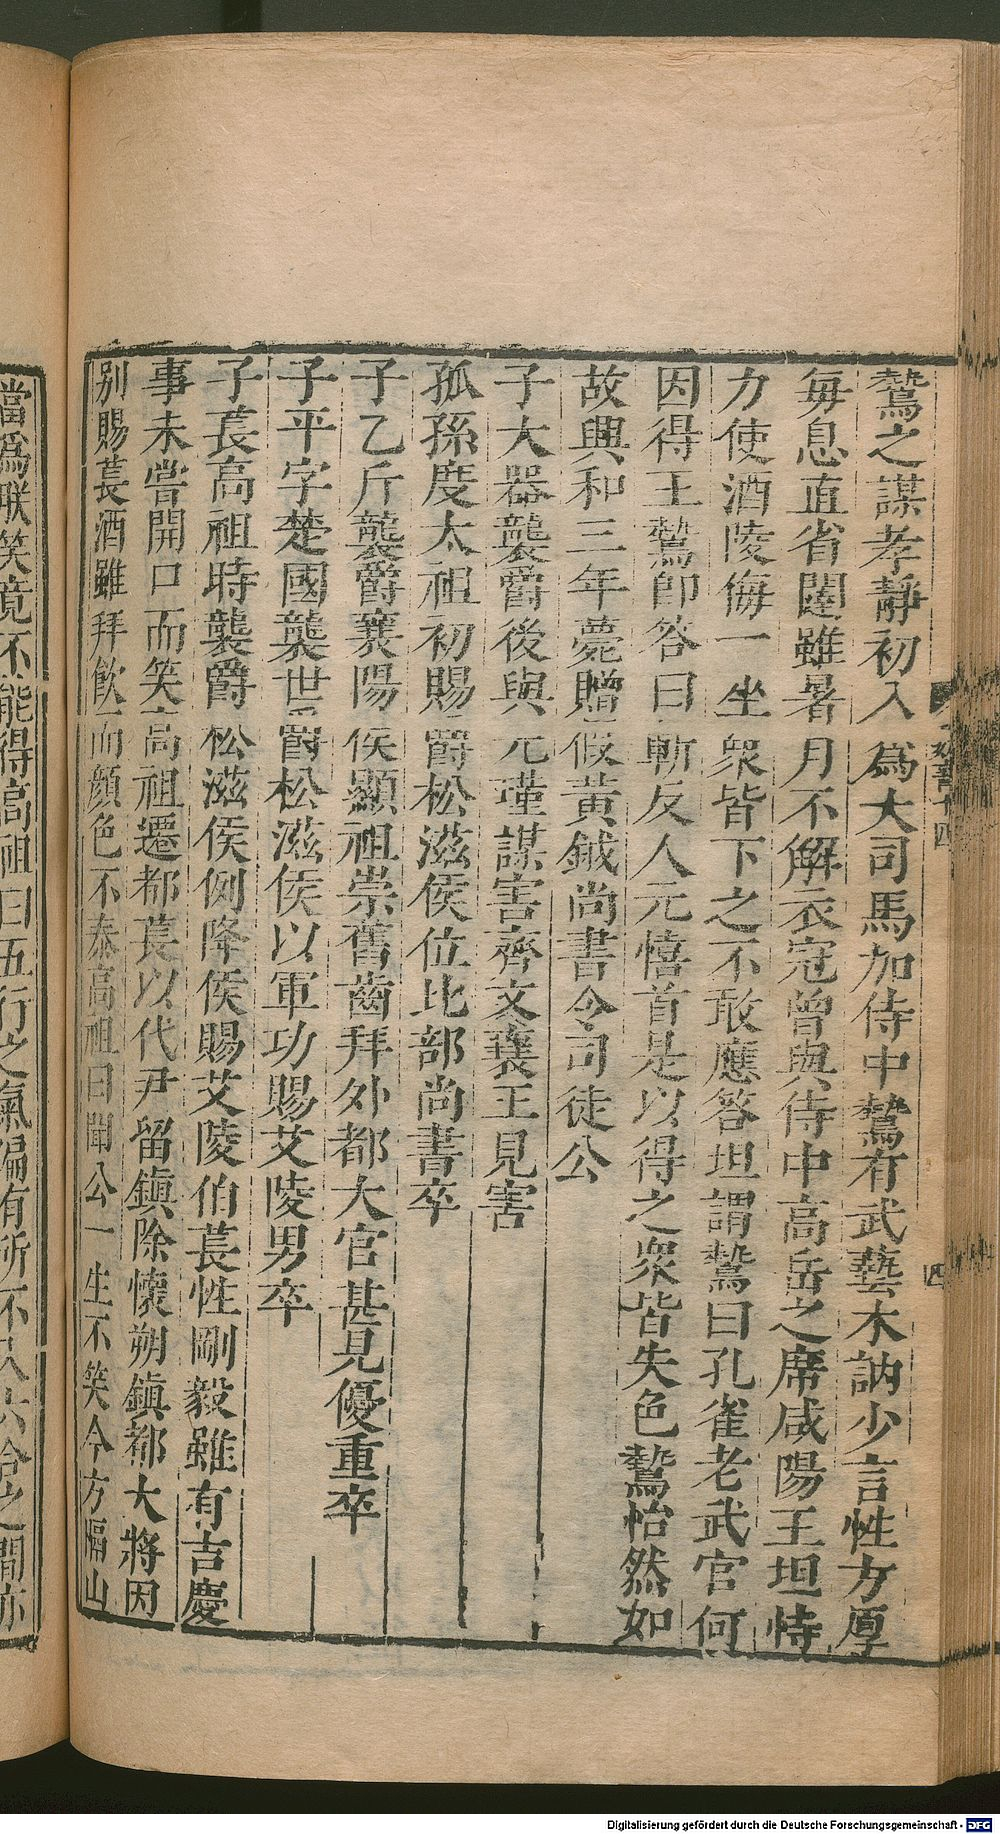 鷙之謀孝靜初入爲大司馬加侍中鷙有武藝木訥少言性方厚
每息直省闥雖暑月不解衣冠曾與侍中高岳之席咸陽王坦恃
力使酒陵侮一坐衆皆下之不敢應答坦謂鷙曰孔雀老武官何
因得王鷙卽答曰斬反人元禧首是以得之衆皆失色鷙怡然如
故興和三年薨贈假黃鉞尚書令司徒公
子大器襲爵後與元瑾謀害齊文襄王見害
孤孫度太祖初賜爵松滋侯位比部尚書卒
子乙斤襲爵襄陽侯顯祖崇舊齒拜外都大官甚見優重卒
子平字楚國襲世爵松滋侯以軍功賜艾陵男卒
子萇高祖時襲爵松滋侯例降侯賜艾陵伯萇性剛毅雖有吉慶
事未嘗開口而笑高祖遷都萇以代尹留鎭除懷朔鎭都大將因
別賜萇酒雖拜飮而顏色不泰高祖曰聞公一生不笑今方隔山
當爲朕笑竟不能得高祖曰五行之氣偏有所不入六合之間亦
魏書十四
四
Digitalisierung gefördert durch die Deutsche Forschungsgemeinschaft - DFG